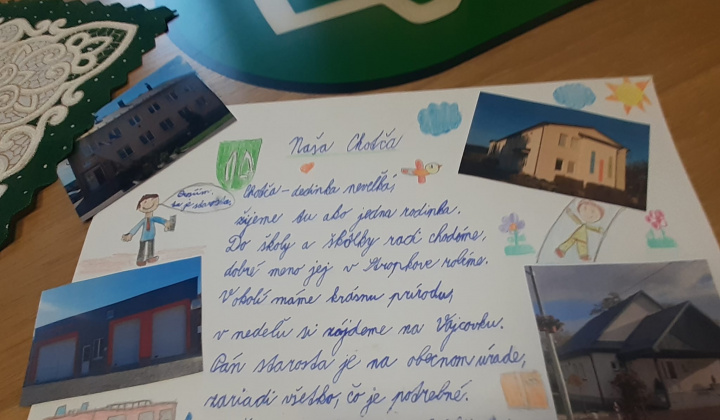 Naša Chotča
Chotča - dedinka neveľká,
žijeme tu ako jedna rodinka.
Do školy a škôlky radi chodíme,
dobré meno jej v Stropkove robíme.
V okolí máme krásnu prírodu,
v nedeľu si zájdeme na Vájcovku.
Pán starosta je na obecnom úrade,
zariadi všetko, čo je potrebné.
tu je starosta.